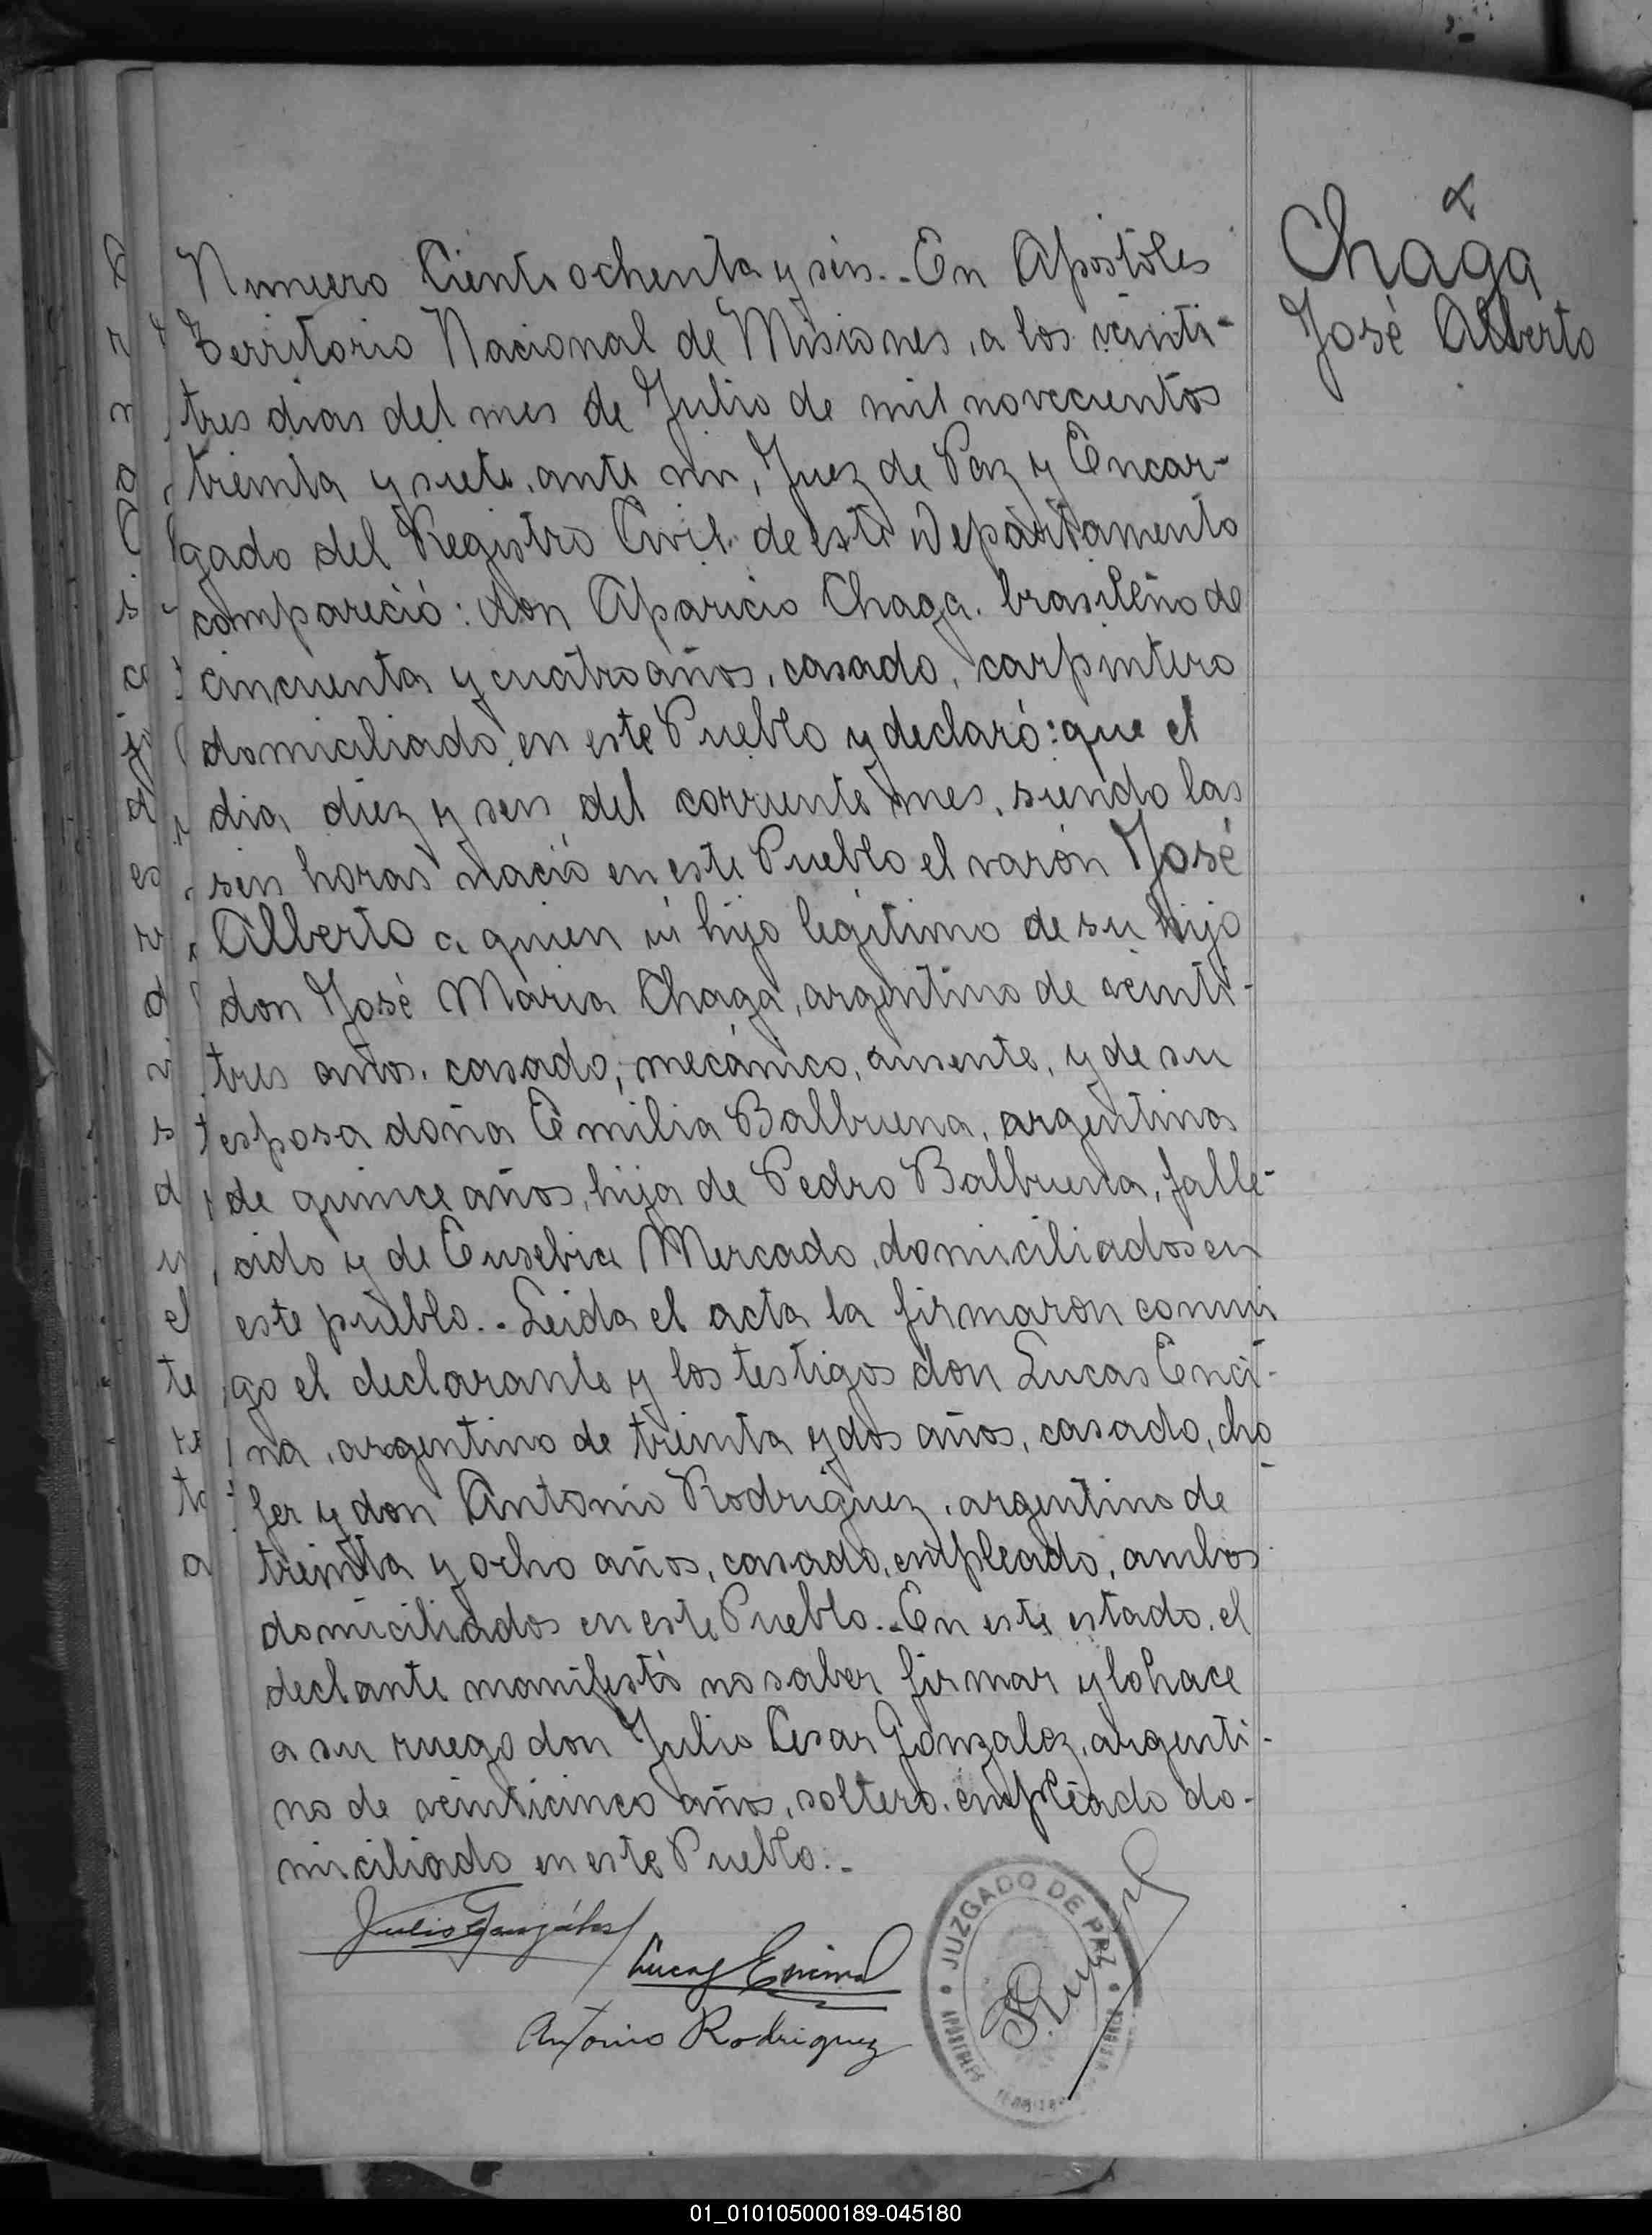 Chaga
José Alberto
Numero Ciento ochenta y seis.- En Apostoles
Territorio Nacional de Misiones, a los veinti-
tres dias del mes de Julio de mil novecientos
treinta y siete, ante mi, Juez de Paz y Encar-
gado del Registro Civil de este Departamento
compareció: don Aparicio Chaga, brasileño de
cincuenta y cuatro años, casado, carpintero
domiciliado en este Pueblo y declaró: que el
dia diez y seis del corriente mes, siendo las
seis horas nació en este Pueblo el varón José
Alberto a quien vi hijo legitimo de su hijo
don José Maria Chaga, argentino de veinti-
tres años, casado, mecánico, ausente, y de su
esposa doña Emilia Balbuena, argentina
de quince años, hija de Pedro Balbuena, falle-
cido y de Eusebia Mercado, domiciliados en
este pueblo.- Leida el acta la firmaron conmi
go el declarante y los testigos don Lucas Enci-
na, argentino de treinta y dos años, casado, cho-
fer y don Antonio Rodriguez, argentino de
treinta y ocho años, casado, empleado, ambos
domiciliados en este Pueblo.- En este estado, el
declante manifestó no saber firmar y lo hace
a su ruego don Julio Cesar Gonzalez, argenti-
no de veinticinco años, soltero, empleado do-
miciliado en este Pueblo.-
Julio González
Lucas Encina
Antonio Rodriguez
JUZGADO DE PAZ
APÓSTOLES
01_010105000189-045180